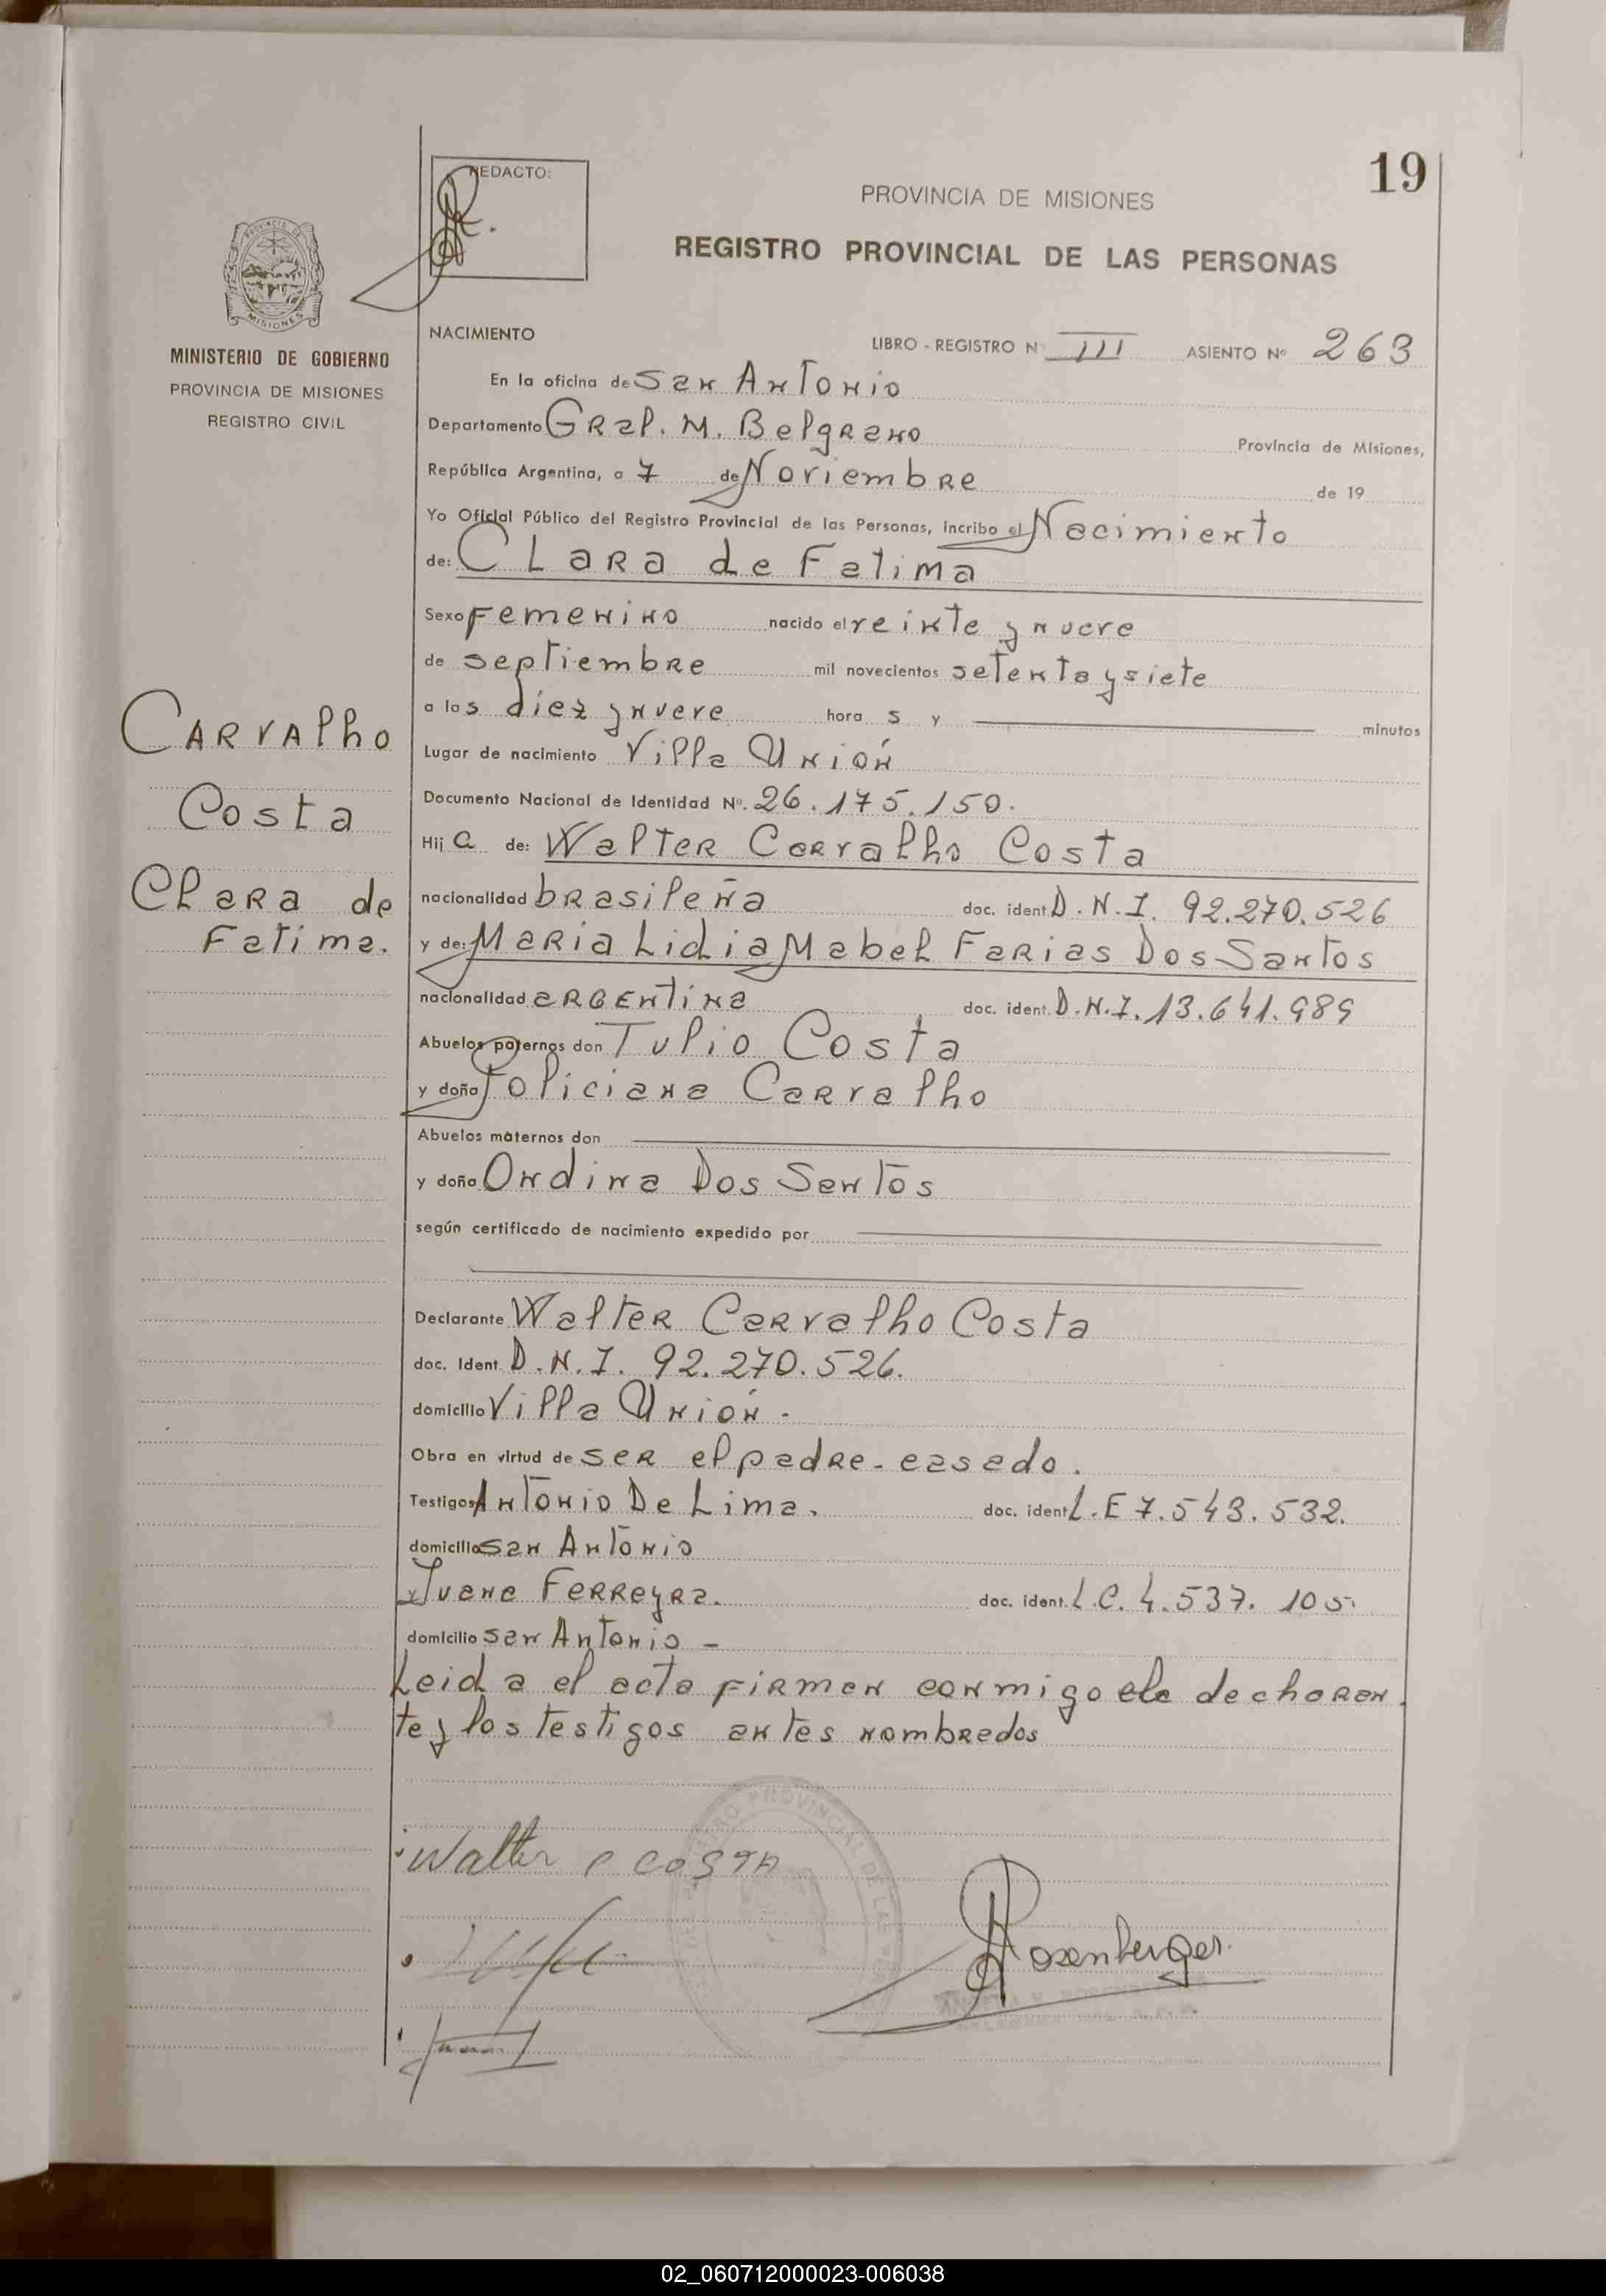 19
REDACTO:
PROVINCIA DE MISIONES
REGISTRO PROVINCIAL DE LAS PERSONAS
MISIONES
MINISTERIO DE GOBIERNO
PROVINCIA DE MISIONES
REGISTRO CIVIL
NACIMIENTO LIBRO - REGISTRO N III ASIENTO Nº 263
En la oficina de San Antonio
Departamento Gral. M. Belgrano Provincia de Misiones,
República Argentina, a 7 de Noviembre de 19
Yo Oficial Público del Registro Provincial de las Personas, incribo el Nacimiento
de: CLARA de Fatima
Sexo Femenino nacido el veinte y nueve
de septiembre mil novecientos setenta y siete
a las diez y nueve hora s y minutos
Lugar de nacimiento Villa Unión
Documento Nacional de Identidad Nº. 26.175.150.
Hij a de: Walter Carvalho Costa
nacionalidad brasileña doc. ident. D.N.I. 92.270.526
y de: Maria Lidia Mabel Farias Dos Santos
nacionalidad argentina doc. ident. D.N.I. 13.641.989
Abuelos paternos don Tulio Costa
y doña Joliciana Carvalho
Abuelos maternos don
y doña Ondina Dos Santos
según certificado de nacimiento expedido por
Declarante Walter Carvalho Costa
doc. Ident. D.N.I. 92.270.526.
domicilio Villa Unión.-
Obra en virtud de ser el padre - casado.
Testigos Antonio De Lima. doc. ident L.E 7.543.532.
domicilio San Antonio
y Juana Ferreyra. doc. ident. L.C. 4.537.105.
domicilio San Antonio -
Leid a el acta firman conmigo el declaran
te y los testigos antes nombrados
CARVALHO
Costa
Clara de
Fatima.
Walter C COSTA
Rosenberger
REGISTRO PROVINCIAL DE LAS
02_060712000023-006038